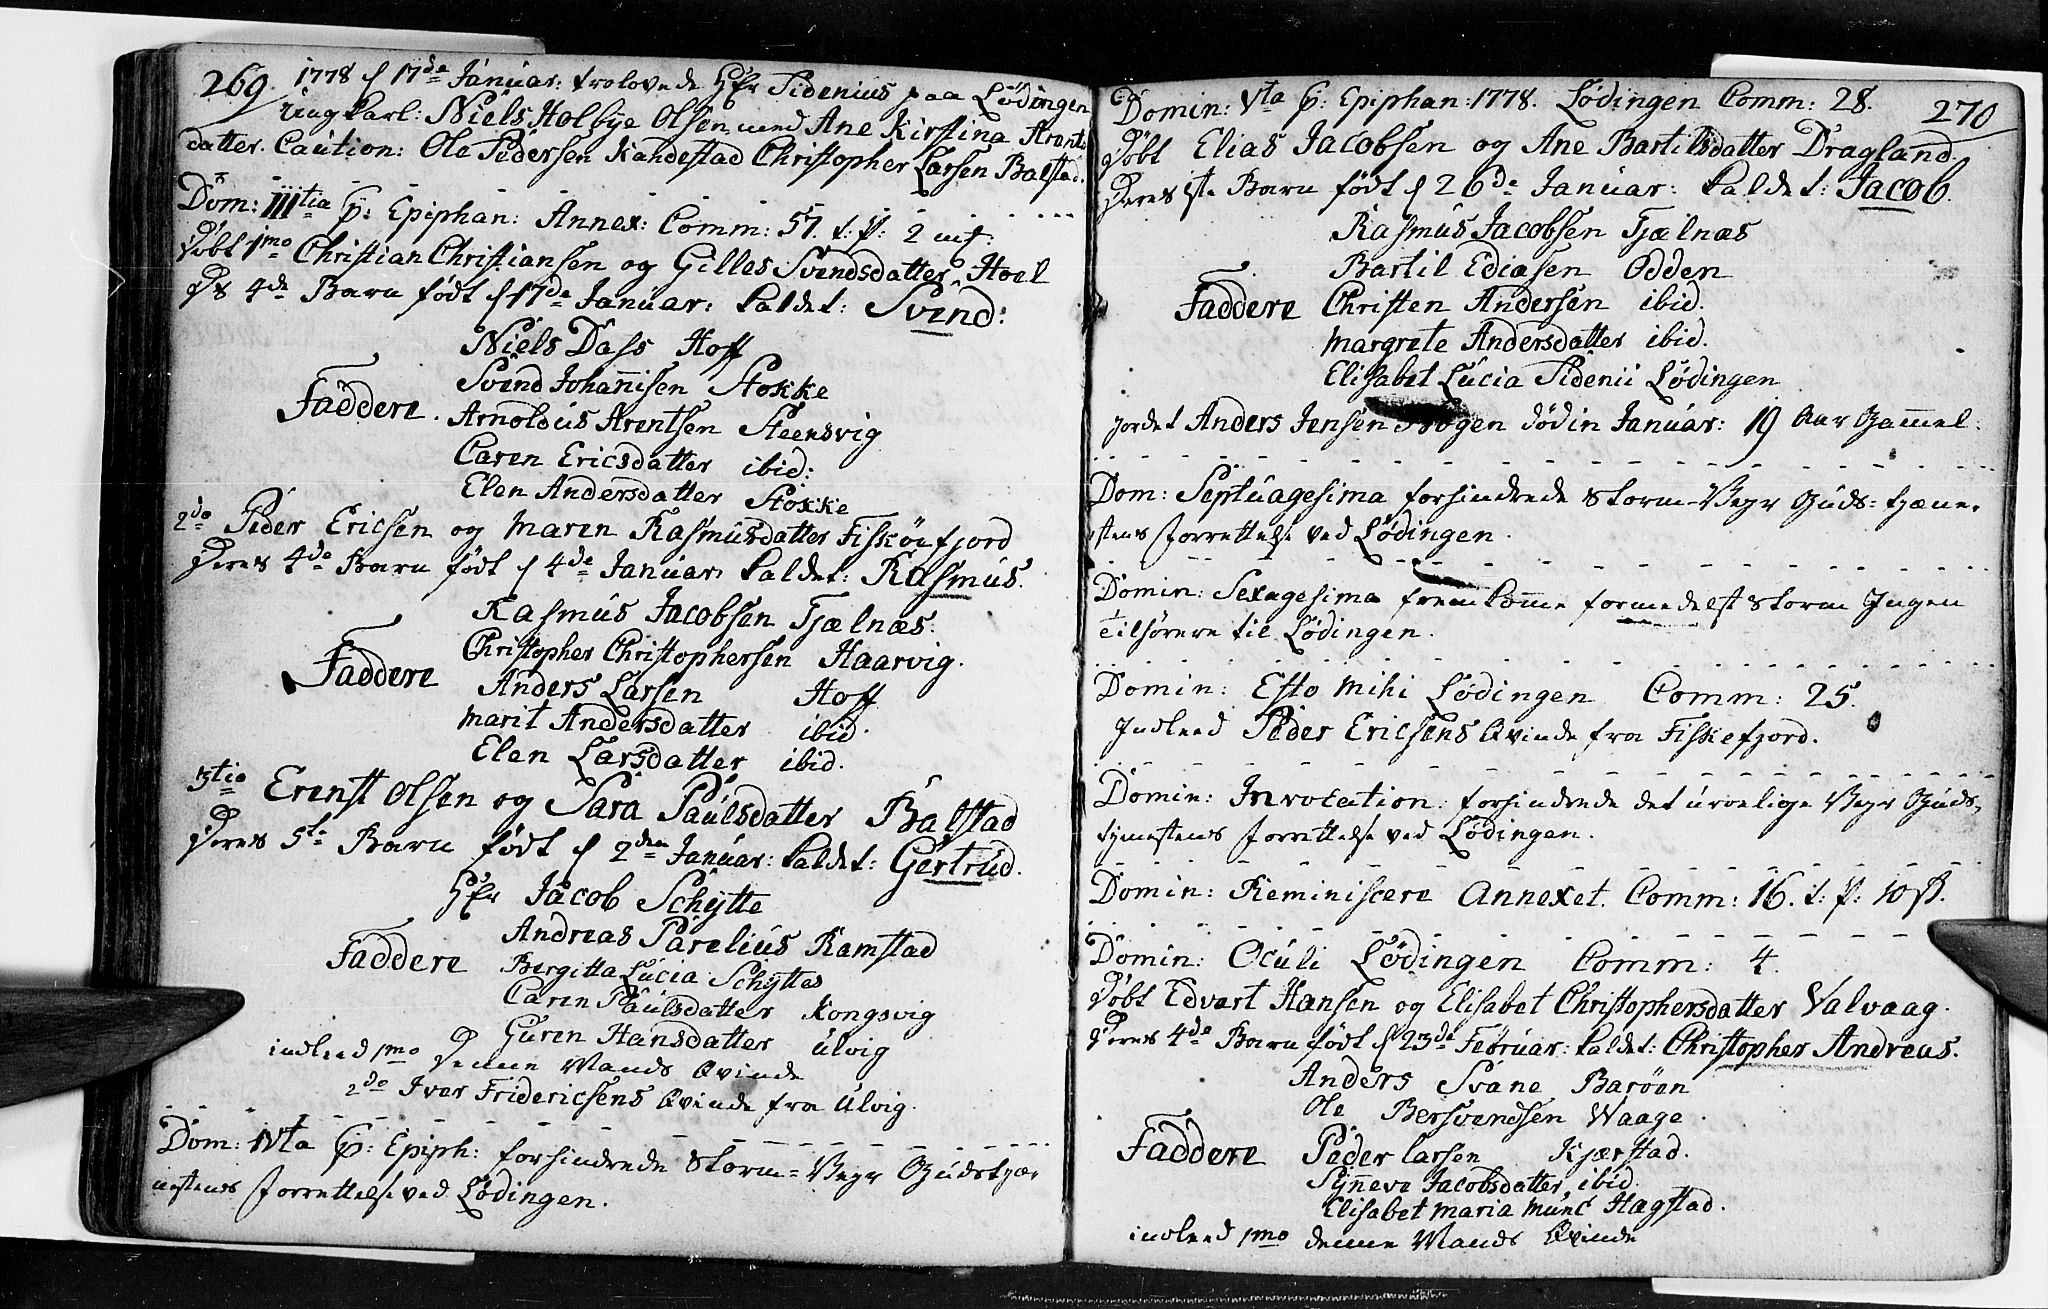 269. 1778 d 17de Januar: trolovede Hr Sidenius paa Lødingen
Ung Karl: Niels Holbye Olsen med Ane Kirstina Arents
datter. Caution: Ole Pedersen Kandestad Christopher Larsen Balstad.
Dom: IIItia p: Epiphan: Annex: Comm: 57. t: p: 2
Døbt 1mo Christian Christiansen og Gilles Svendsdatter Hoel
Ds 4de Barn født d 17de Januar: kaldet: Svend:
Niels Dass Hoff
Svend Johannisen Stokke
Faddere. Arnoldus Arentsen Steensvig
Caren Ericsdatter ibid:
Elen Andersdatter Stokke
2do Peder Ericsen og Maren Rasmusdatter Fiskøefjord
Deres 4de Barn født d 4de Januar: kaldet: Rasmus.
Rasmus Jacobsen Tjælnæs.
Christopher Christophersen Haarvig.
Faddere Anders Larsen Hoff
Marit Andersdatter ibid.
Elen Larsdatter ibid.
3tio Ernst Olsen og Sara Paulsdatter Balstad
Deres 5te Barn født d 2den Januar: kaldet: Gertrud.
Hr Jacob Schytte
Andreas Parelius Ramstad
Faddere Bergitta Lucia Schyttes
Caren Paulsdatter Kongsvig
Guren Hansdatter Ulvig
indleed 1mo Denne Mands Qvinde
2do Iver Fridericsens Qvinde fra Ulvig.
Dom: IVta p: Epiph: forhindrede Storm-Veyr Gudstjæ-
nestens Forrettelse ved Lødingen.
Domin: Vta p: Epiphan: 1778. Lødingen Comm: 28. 270
Døbt Elias Jacobsen og Ane Bartilsdatter Dragland.
Deres 1ste Barn født d 26de Januar: kaldet: Jacob.
Rasmus Jacobsen Tjælnæs
Bartil Ediasen Odden
Faddere Christen Andersen ibid.
Margrete Andersdatter ibid.
Elisabet Lucia Sidenii Lødingen
Jordet Anders Jensen død in Januar: 19 Aar Gammel:
Dom: Septuagesima forhindrede Storm-Veyr Guds-tjæne-
stens Forrettelse ved Lødingen.
Domin: Sexagesima fremkomme formedelst Storm Ingen
Tilhørere til Lødingen.
Domin: Esto Mihi Lødingen Comm: 25.
Indleed Peder Ericsens Qvinde fra Fiskefjord.
Domin: Invocation: forhindrede det urolige Veyr Guds-
tjenestens Forrettelse ved Lødingen.
Domin: Reminiscere Annexet. Comm: 16. t: p: 10 ß.
Domin: Oculi Lødingen Comm: 4.
Døbt Edvart Hansen og Elisabet Christophersdatter Valvaag.
Deres 4de Barn født d 23de Februar: kaldet: Christopher Andreas.
Anders Svane Barøen
Ole Bersvendsen Waage.
Faddere Peder Larsen Kjærstad.
Synneve Jacobsdatter ibid.
Elisabet Maria Munc Hagstad.
indleed 1mo denne Mands Qvinde